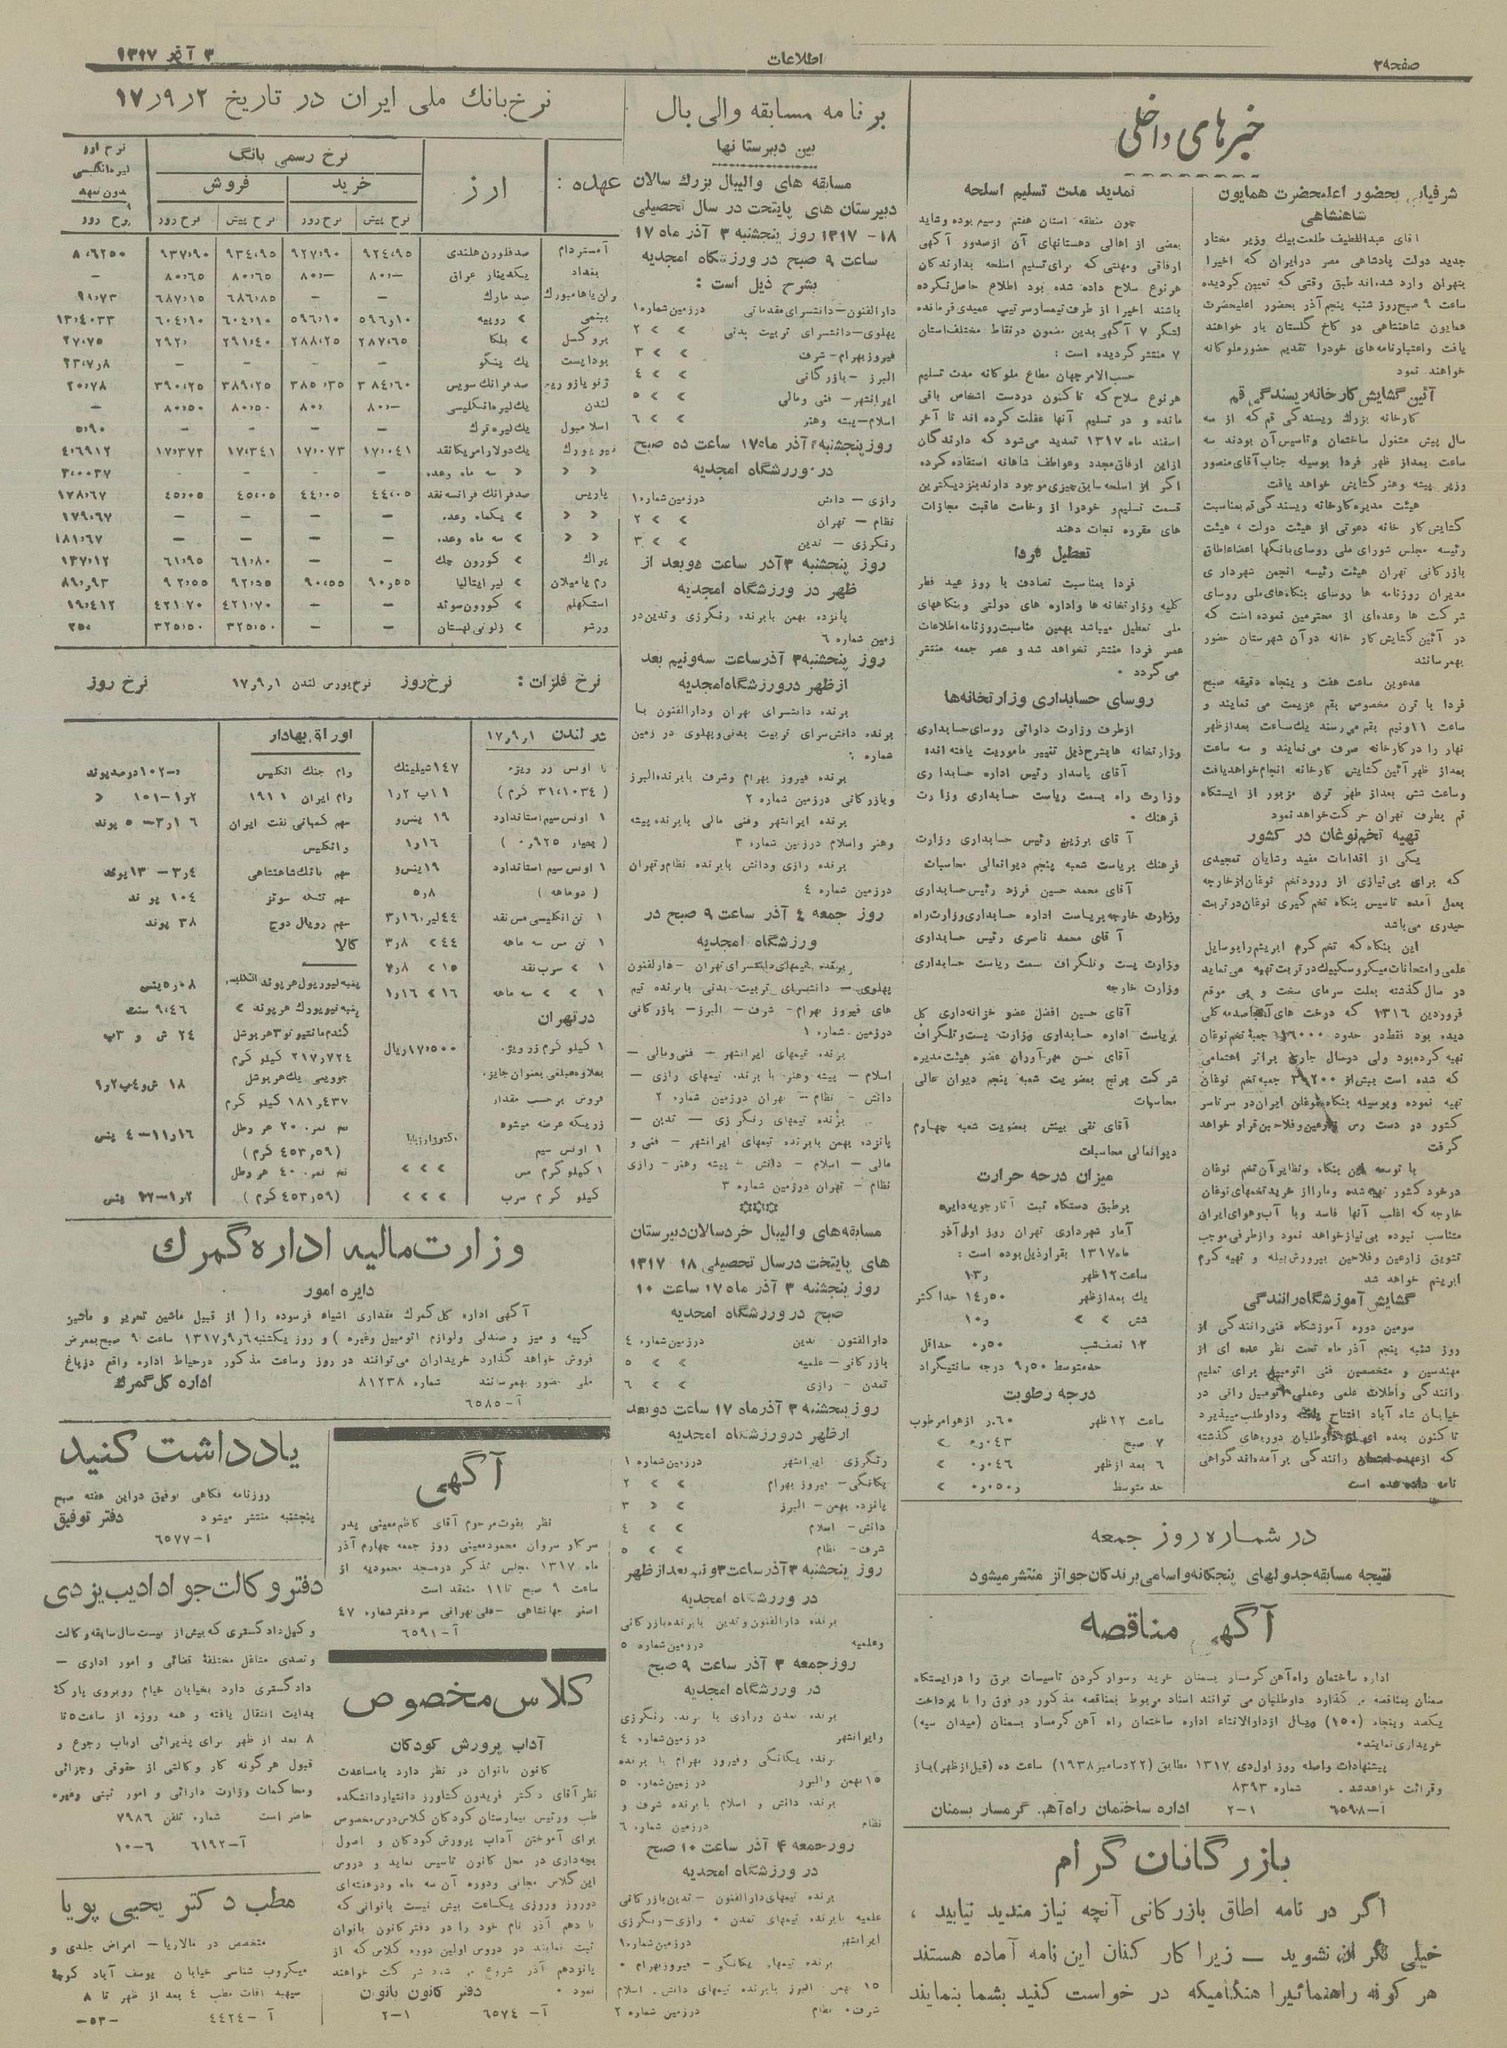 صفحه ۳۹
اطلاعات
۳ آذر ۱۳۱۷
خبرهای داخلی
شرفیابی بحضور اعلیحضرت همایون
شاهنشاهی
آقای عبداللطیف طلعت بیك وزیر مختار
جدید دولت پادشاهی مصر درایران که اخیرا
بتهران وارد شده‌اند طبق وقتی که تعیین گردیده
ساعت ۹ صبح روز شنبه پنجم آذر بحضور اعلیحضرت
همایون شاهنشاهی در کاخ گلستان بار خواهند
یافت واعتبارنامه‌های خودرا تقدیم حضور ملوکانه
خواهند نمود
آئین گشایش کارخانه ریسندگی قم
کارخانه بزرك ریسندگی قم که از سه
سال پیش مشغول ساختمان وتاسیس آن بودند سه
ساعت بعداز ظهر فردا بوسیله جناب آقای منصور
وزیر پیشه وهنر گشایش خواهد یافت
هیئت مدیره کارخانه ریسندگی قم بمناسبت
گشایش کار خانه دعوتی از هیئت دولت ، هیئت
رئیسه مجلس شورای ملی روسای بانگها اعضاء اطاق
بازرگانی تهران هیئت رئیسه انجمن شهرداری
مدیران روزنامه ها روسای بنگاه‌های ملی روسای
شرکت ها وعده‌ای از محترمین نموده است که
در آئین گشایش کار خانه در آن شهرستان حضور
بهمرسانند
مدعوین ساعت هفت و پنجاه دقیقه صبح
فردا با ترن مخصوص بقم عزیمت می نمایند و
ساعت ۱۱ ونیم بقم می رسند یك ساعت بعدازظهر
نهار را در کارخانه صرف می نمایند و سه ساعت
بعداز ظهر آئین گشایش کارخانه انجام خواهد یافت
وساعت شش بعداز ظهر ترن مزبور از ایستگاه
قم بطرف تهران حرکت خواهد نمود
تهیه تخم نوغان در کشور
یکی از اقدامات مفید وشایان تمجیدی
که برای بی‌نیازی از ورود تخم نوغان از خارجه
بعمل آمده تاسیس بنگاه تخم گیری نوغان در تربت
حیدری می‌باشد
این بنگاه که تخم کرم ابریشم را بوسایل
علمی وامتحانات میکروسکپیك در تربت تهیه می نماید
در سال گذشته بعلت سرمای سخت و بی موقع
فروردین ۱۳۱۶ که درخت های آنجا صدمه کلی
دیده بود فقط در حدود ۱۶۰۰۰ جعبه تخم نوغان
تهیه کرده بود ولی درسال جاری براثر اهتمامی
که شده است بیش از ۳۹۲۰۰ جعبه تخم نوغان
تهیه نموده وبوسیله بنگاه نوغان ایران در سرتاسر
کشور در دست رس زارعین وفلاحین قرار خواهد
گرفت
با توسعه این بنگاه ونظایر آن تخم نوغان
در خود کشور تهیه شده ومارا از خرید تخمهای نوغان
خارجه که اغلب آنها فاسد ویا با آب وهوای ایران
متناسب نبوده بی‌نیاز خواهد نمود وازطرفی موجب
تشویق زارعین وفلاحین بپرورش پیله و تهیه کرم
ابریشم خواهد شد
گشایش آموزشگاه رانندگی
سومین دوره آموزشگاه فنی رانندگی از
روز شنبه پنجم آذر ماه تحت نظر عده ای از
مهندسین و متخصصین فنی اتومبیل برای تعلیم
رانندگی واطلات علمی وعملی اتومبیل رانی در
خیابان شاه آباد افتتاح یافته وداوطلب میپذیرد
تاکنون بعده ای از داوطلبان دوره‌های گذشته
که ازعهده امتحان رانندگی برآمده‌اند گواهی
نامه داده شده است
تمدید مدت تسلیم اسلحه
چون منطقه استان هفتم وسیم بوده وشاید
بعضی از اهالی دهستانهای آن ازصدور آگهی
ارفاقی ومهلتی که برای تسلیم اسلحه بدارندگان
هرنوع سلاح داده شده بود اطلاع حاصل نکرده
باشند اخیرا از طرف تیمسار سرتیپ عمیدی فرمانده
لشگر ۷ آگهی بدین مضمون درنقاط مختلف استان
۷ منتشر گردیده است :
حسب‌الامر جهان مطاع ملوکانه مدت تسلیم
هرنوع سلاح که تاکنون دردست اشخاص باقی
مانده و در تسلیم آنها غفلت کرده اند تا آخر
اسفند ماه ۱۳۱۷ تمدید می‌شود که دارندگان
ازاین ارفاق مجدد وعواطف شاهانه استفاده کرده
اگر از اسلحه سابق چیزی موجود دارند بنزدیکترین
قسمت تسلیم و خودرا از وخامت عاقبت مجازات
های مقرره نجات دهند
تعطیل فردا
فردا بمناسبت تصادف با روز عید فطر
کلیه وزارتخانه ها واداره های دولتی وبنگاههای
ملی تعطیل میباشد بهمین مناسبت روزنامه اطلاعات
عصر فردا منتشر نخواهد شد و عصر جمعه منتشر
می گردد .
روسای حسابداری وزارتخانه‌ها
ازطرف وزارت دارائی روسای حسابداری
وزارتخانه هابشرح ذیل تغییر ماموریت یافته‌اند
آقای پاسدار رئیس اداره حسابداری
وزارت راه بسمت ریاست حسابداری وزارت
فرهنك .
آقای برزین رئیس حسابداری وزارت
فرهنك بریاست شعبه پنجم دیوانعالی محاسبات
آقای محمد حسین فرزد رئیس حسابداری
وزارت خارجه بریاست اداره حسابداری وزارت راه
آقای محمد ناصری رئیس حسابداری
وزارت پست وتلگراف بسمت ریاست حسابداری
وزارت خارجه
آقای حسین افضل عضو خزانه‌داری کل
بریاست اداره حسابداری وزارت پست وتلگراف
آقای حسن مهرآوران عضو هیئت مدیره
شرکت برنج بعضویت شعبه پنجم دیوان عالی
محاسبات
آقای نقی بینش بعضویت شعبه چهارم
دیوانعالی محاسبات
میزان درجه حرارت
برطبق دستگاه ثبت آثار جویه دایره
آمار شهرداری تهران روز اول آذر
ماه ۱۳۱۷ بقرار ذیل بوده است :
ساعت ۱۲ ظهر ۱۳ر
یك بعدازظهر ۱۴ر۵۰ حداکثر
شش > > ۱۰ر
۱۲ نصف‌شب ۰ر۵۰ حداقل
حدمتوسط ۹ر۵۰ درجه سانتیگراد
درجه رطوبت
ساعت ۱۲ ظهر ۶۰ر۰ ازهوا مرطوب
۷ صبح ۰ر۰۴۳ >
۶ بعد ازظهر ۰ر۰۴۶ >
حد متوسط ۰ر۰۵۰ >
در شماره روز جمعه
نتیجه مسابقه جدولهای پنجگانه واسامی برندگان جوائز منتشر میشود
آگهی مناقصه
اداره ساختمان راه‌آهن گرمسار بسمنان خرید وسوار کردن تاسیسات برق را درایستگاه
سمنان بمناقصه می گذارد داوطلبان می توانند اسناد مربوط بمناقصه مذکور در فوق را با پرداخت
یکصد وپنجاه (۱۵۰) ریال ازدارالانشاء اداره ساختمان راه آهن گرمسار بسمنان (میدان سپه)
خریداری نمایند .
پیشنهادات واصله روز اول دی ۱۳۱۷ مطابق (۲۲ دسامبر ۱۹۳۸) ساعت ده (قبل ازظهر) باز
وقرائت خواهد شد . شماره ۸۳۹۳
آ-۶۵۹۸ ۱-۲ اداره ساختمان راه‌آهن گرمسار بسمنان
بازرگانان گرام
اگر در نامه اطاق بازرگانی آنچه نیاز مندید نیابید ،
خیلی نگران نشوید ــ زیرا کار کنان این نامه آماده هستند
هر گونه راهنمائیرا هنگامیکه در خواست کنید بشما بنمایند
برنامه مسابقه والی بال
بین دبیرستانها
مسابقه های والیبال بزرك سالان
دبیرستان های پایتخت در سال تحصیلی
۱۸-۱۳۱۷ روز پنجشنبه ۳ آذر ماه ۱۷
ساعت ۹ صبح در ورزشگاه امجدیه
بشرح ذیل است :
دارالفنون-دانشسرای مقدماتی درزمین شماره ۱
پهلوی-دانشسرای تربیت بدنی > > ۲
فیروزبهرام-شرف > > ۳
البرز -بازرگانی > > ۴
ایرانشهر- فنی ومالی > > ۵
اسلام-پیشه وهنر > > ۶
روز پنجشنبه ۳ آذر ماه ۱۷ ساعت ده صبح
در ورزشگاه امجدیه
رازی - دانش درزمین شماره ۱
نظام - تهران > > ۲
رنگرزی - تدین > > ۳
روز پنجشنبه ۳ آذر ساعت دو بعد از
ظهر در ورزشگاه امجدیه
پانزده بهمن بابرنده رنگرزی وتدین در
زمین شماره ۶
روز پنجشنبه ۳ آذر ساعت سه ونیم بعد
ازظهر درورزشگاه امجدیه
برنده دانشسرای تهران ودارالفنون با
برنده دانش‌سرای تربیت بدنی وپهلوی در زمین
شماره ۱
برنده فیروز بهرام وشرف بابرنده البرز
وبازرگانی درزمین شماره ۲
برنده ایرانشهر وفنی مالی بابرنده پیشه
وهنر واسلام درزمین شماره ۳
برنده رازی ودانش بابرنده نظام وتهران
درزمین شماره ۴
روز جمعه ۴ آذر ساعت ۹ صبح در
ورزشگاه امجدیه
برنده تیمهای دانشسرای تهران -دارالفنون
پهلوی - دانشسرای تربیت بدنی بابرنده تیم
های فیروز بهرام- شرف- البرز- بازرگانی
درزمین شماره ۱
برنده تیمهای ایرانشهر - فنی ومالی-
اسلام- پیشه وهنر با برنده تیمهای رازی -
دانش - نظام - تهران درزمین شماره ۲
برنده تیمهای رنگرزی - تدین -
پانزده بهمن بابرنده تیمهای ایرانشهر - فنی و
مالی- اسلام - دانش- پیشه وهنر- رازی
نظام - تهران درزمین شماره ۳
مسابقه‌های والیبال خردسالان دبیرستان
های پایتخت درسال تحصیلی ۱۸ ۱۳۱۷
روز پنجشنبه ۳ آذر ماه ۱۷ ساعت ۱۰
صبح در ورزشگاه امجدیه
دارالفنون تدین درزمین شماره ۴
بازرگانی- علمیه > > ۵
تمدن - رازی > > ۶
روز پنجشنبه ۳ آذرماه ۱۷ ساعت دو بعد
ازظهر درورزشگاه امجدیه
رنگرزی- ایرانشهر درزمین شماره ۱
یگانگی- فیروز بهرام > > ۲
پانزده بهمن- البرز > > ۳
دانش- اسلام > > ۴
شرف- نظام > > ۵
روز پنجشنبه ۳ آذر ساعت ۳ ونیم بعد ازظهر
در ورزشگاه امجدیه
برنده دارالفنون وتدین بابرنده بازرگانی
وعلمیه درزمین شماره ۵
روز جمعه ۴ آذر ساعت ۹ صبح
در ورزشگاه امجدیه
برنده تمدن ورازی با برنده رنگرزی
وایرانشهر درزمین شماره ۴
برنده یگانگی وفیروز بهرام با برنده
۱۵ بهمن والبرز در زمین شماره ۵
برنده دانش و اسلام بابرنده شرف و
نظام درزمین شماره ۶
روز جمعه ۴ آذر ساعت ۱۰ صبح
در ورزشگاه امجدیه
برنده تیمهای دارالفنون -تدین بازرگانی
علمیه بابرنده تیمهای تمدن . رازی-رنگرزی
ایرانشهر درزمین شماره ۱
برنده تیمهای یگانگی- فیروز بهرام .
۱۵ بهمن البرز بابرنده تیمهای دانش . اسلام
شرف. نظام درزمین شماره ۲
نرخ بانك ملی ایران در تاریخ ۲ر۹ر۱۷
عهده : ارز نرخ رسمی بانگ نرخ ارز لیره انگلیسی بدون تعهد
خرید فروش
نرخ پیش نرخ روز نرخ پیش نرخ روز نرخ روز
آمستردام صدفلورن هلندی ۹۲۴،۹۵ ۹۲۷،۹۰ ۹۳۴،۹۵ ۹۳۷،۹۰ ۸،۶۲۵۰
بغداد یکدینار عراق ۸۰،- ۸۰،- ۸۰،۶۵ ۸۰،۶۵ -
برلن یاهامبورك صد مارك - - ۶۸۶،۸۵ ۶۸۷،۱۵
بمبئی > روپیه ۵۹۶،۱۰ ۵۹۶،۱۰ ۶۰۴،۱۰ ۶۰۴،۱۰ ۱۳،۴۰۳۳
بروکسل > بلگا ۲۸۷،۶۵ ۲۸۸،۲۵ ۲۹۱،۴۰ ۲۹۲، ۲۷،۷۵
بوداپست یك پنگو
ژنو یا زوریه صدفرانك سویس ۳۸۴،۶۰ ۳۸۵،۳۵ ۳۸۹،۲۵ ۳۹۰،۲۵ ۲۰،۷۸
لندن یك لیره انگلیسی ۸۰،- ۸۰، ۸۰،۵۰ ۸۰،۵۰ -
اسلامبول یك لیره ترك - - - - ۵،۹۰
نیویورك یك دولار امریکا نقد ۱۷،۰۴۱ ۱۷،۰۷۳ ۱۷،۳۴۱ ۱۷،۳۷۳ ۴،۶۹۱۲
> > > سه ماه وعده
پاریس صدفرانك فرانسه نقد ۴۴،۰۵ ۴۴،۰۵ ۴۵،۰۵ ۴۵،۰۵ ۱۷۸،۶۷
> > > یکماه وعده - - - - ۱۷۹،۶۷
> > > سه ماه وعده - - - - ۱۸۱،۶۷
پراك > کورون چك - - ۶۱،۸۰ ۶۱،۹۵ ۱۳۷،۱۲
رم یا میلان > لیر ایتالیا ۹۰،۵۵ ۹۰،۵۵ ۹۲،۵۵ ۹۲،۵۵ ۸۹،۹۳
استکهلم > کورون سوئد - - ۴۲۱،۷۰ ۴۲۱،۷۰ ۱۹،۴۱۲
ورشو > زلوتی لهستان - - ۳۲۵،۵۰ ۳۲۵،۵۰ ۲۵،
نرخ فلزات : نرخ روز نرخ بورس لندن ۱ر۹ر۱۷ نرخ روز
در لندن ۱ر۹ر۱۷
۱ اونس زر ویژه ۱۴۷ شیلینك
(۳۱،۱۰۳۴ گرم) ۱۱پ ۱ر۲
۱ اونس سیم استاندارد ۱۹ پنس و
(بعیار ۰،۹۲۵) ۱ر۱۶
۱ اونس سیم استاندارد ۱۹ پنس و
(دوماهه) ۵ر۸
۱ تن انگلیسی مس نقد ۴۴ لیره ۳ر۱۶
۱ تن مس سه ماهه ۴۴> ۳ر۸
۱ > سرب نقد ۱۵>
۱ > > سه ماهه ۱۶> ۱ر۱۶
درتهران
۱ کیلو گرم زر ویژه ۱۷،۵۰۰ ریال
بعلاوه مبلغی بعنوان جایزه
فروش برحسب مقدار
زریکه عرضه میشود
۱ اونس سیم
۱ کیلو گرم مس > > >
کیلو گرم سرب > > >
اوراق بهادار
وام جنك انگلیس ۱۰۲-۰ درصد پوند
وام ایران ۱۹۱۱ ۱۰۱-۱ر۲ >
سهم کمپانی نفت ایران وانگلیس
سهم بانك شاهنشاهی ۱۳-۳ر۴ پوند
سهم تنگه سوئز ۱۰۴ پوند
سهم رویال دوچ ۳۸ پوند
کالا
پنبه لیورپول هرپوند انگلیسی ۵ر۰۸ پنس
پنبه نیویورك هرپوند > ۹،۴۶ سنت
گندم مانتیو نو ۳ هربوشل ۲۴ ش و ۳پ
۲۱۷ر۷۲۴ کیلو گرم
جو ویسی یك هربوشل
۱۸۱ر۴۳۷ کیلو گرم
نخ نمره ۲۰ هر رطل
(۴۵۳ر۵۹ گرم)
نخ نمره ۴۰ هر رطل
(۴۵۳ر۵۹ گرم)
وزارت مالیه اداره گمرك
دایره امور
آگهی اداره کل گمرك مقداری اشیاء فرسوده را ( از قبیل ماشین تحریر و ماشین
کپیه و میز و صندلی ولوازم اتومبیل وغیره ) و روز یکشنبه ۶ر۹ر۱۳۱۷ ساعت ۹ صبح بمعرض
فروش خواهد گذارد خریداران می‌توانند در روز وساعت مذکور درحیاط اداره واقع درباغ
ملی حضور بهمرسانند شماره ۸۱۲۳۸ اداره کل گمرك
آ-۶۵۸۵
آگهی
نظر بفوت مرحوم آقای کاظم معینی پدر
سرکار سروان محمود معینی روز جمعه چهارم آذر
ماه ۱۳۱۷ مجلس تذکر درمسجد محمودیه از
ساعت ۹ صبح تا ۱۱ منعقد است
اصغر جهانشاهی -علی تهرانی سردفتر شماره ۴۷
آ-۶۵۹۱
کلاس مخصوص
آداب پرورش کودکان
کانون بانوان در نظر دارد با مساعدت
نظر آقای دکتر فریدون کشاورز دانشیار دانشکده
طب ورئیس بیمارستان کودکان کلاس درس مخصوص
برای آموختن آداب پرورش کودکان و اصول
بچه‌داری در محل کانون تاسیس نماید و دروس
این کلاس مجانی ودوره آن سه ماه ودرهفته‌ای
دوروز وروزی یکساعت بیش نیست بانوانی که
تا دهم آذر نام خود را در دفتر کانون بانوان
ثبت نمایند در دروس اولین دوره کلاس که از
پانزدهم آذر شروع می شود شرکت خواهند
نمود . دفتر کانون بانوان
آ-۶۵۷۴ ۱-۲
یادداشت کنید
روزنامه فکاهی توفیق دراین هفته صبح
پنجشنبه منتشر میشود دفتر توفیق
آ-۶۵۷۷
دفتر وکالت جواد ادیب یزدی
وکیل دادگستری که بیش از بیست سال سابقه وکالت
وتصدی مشاغل مختلفهٔ قضائی و امور اداری -
دادگستری دارد بخیابان خیام روبروی پارك
هدایت انتقال یافته و همه روزه از ساعت ۵ تا
۸ بعد از ظهر برای پذیرائی ارباب رجوع و
قبول هرگونه کار وکالتی از حقوقی وجزائی
ومحاکمات وزارت دارائی و امور ثبتی وغیره
حاضر است شماره تلفن ۷۹۸۶
آ-۶۱۹۲ ۶-۱۰
مطب دکتر یحیی پویا
متخصص در مالاریا- امراض جلدی و
میکروب شناسی خیابان یوسف آباد کوچه
سپهبد اوقات مطب ۴ بعد از ظهر تا ۸
آ-۴۴۲۴ -۵۳-